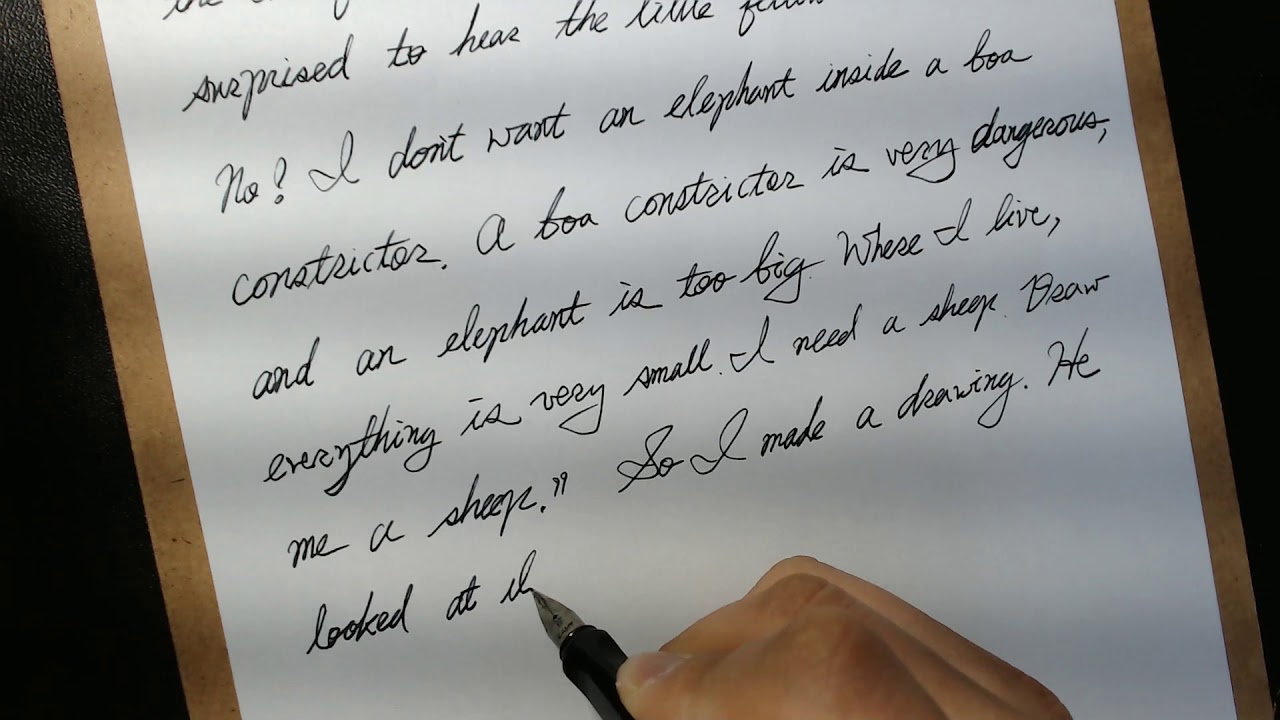 the
surprised to hear the little
No? I don't want an elephant inside a boa
constrictor. A boa constrictor is very dangerous,
and an elephant is too big. Where I live,
everything is very small. I need a sheep. Draw
me a sheep." So I made a drawing. He
looked at